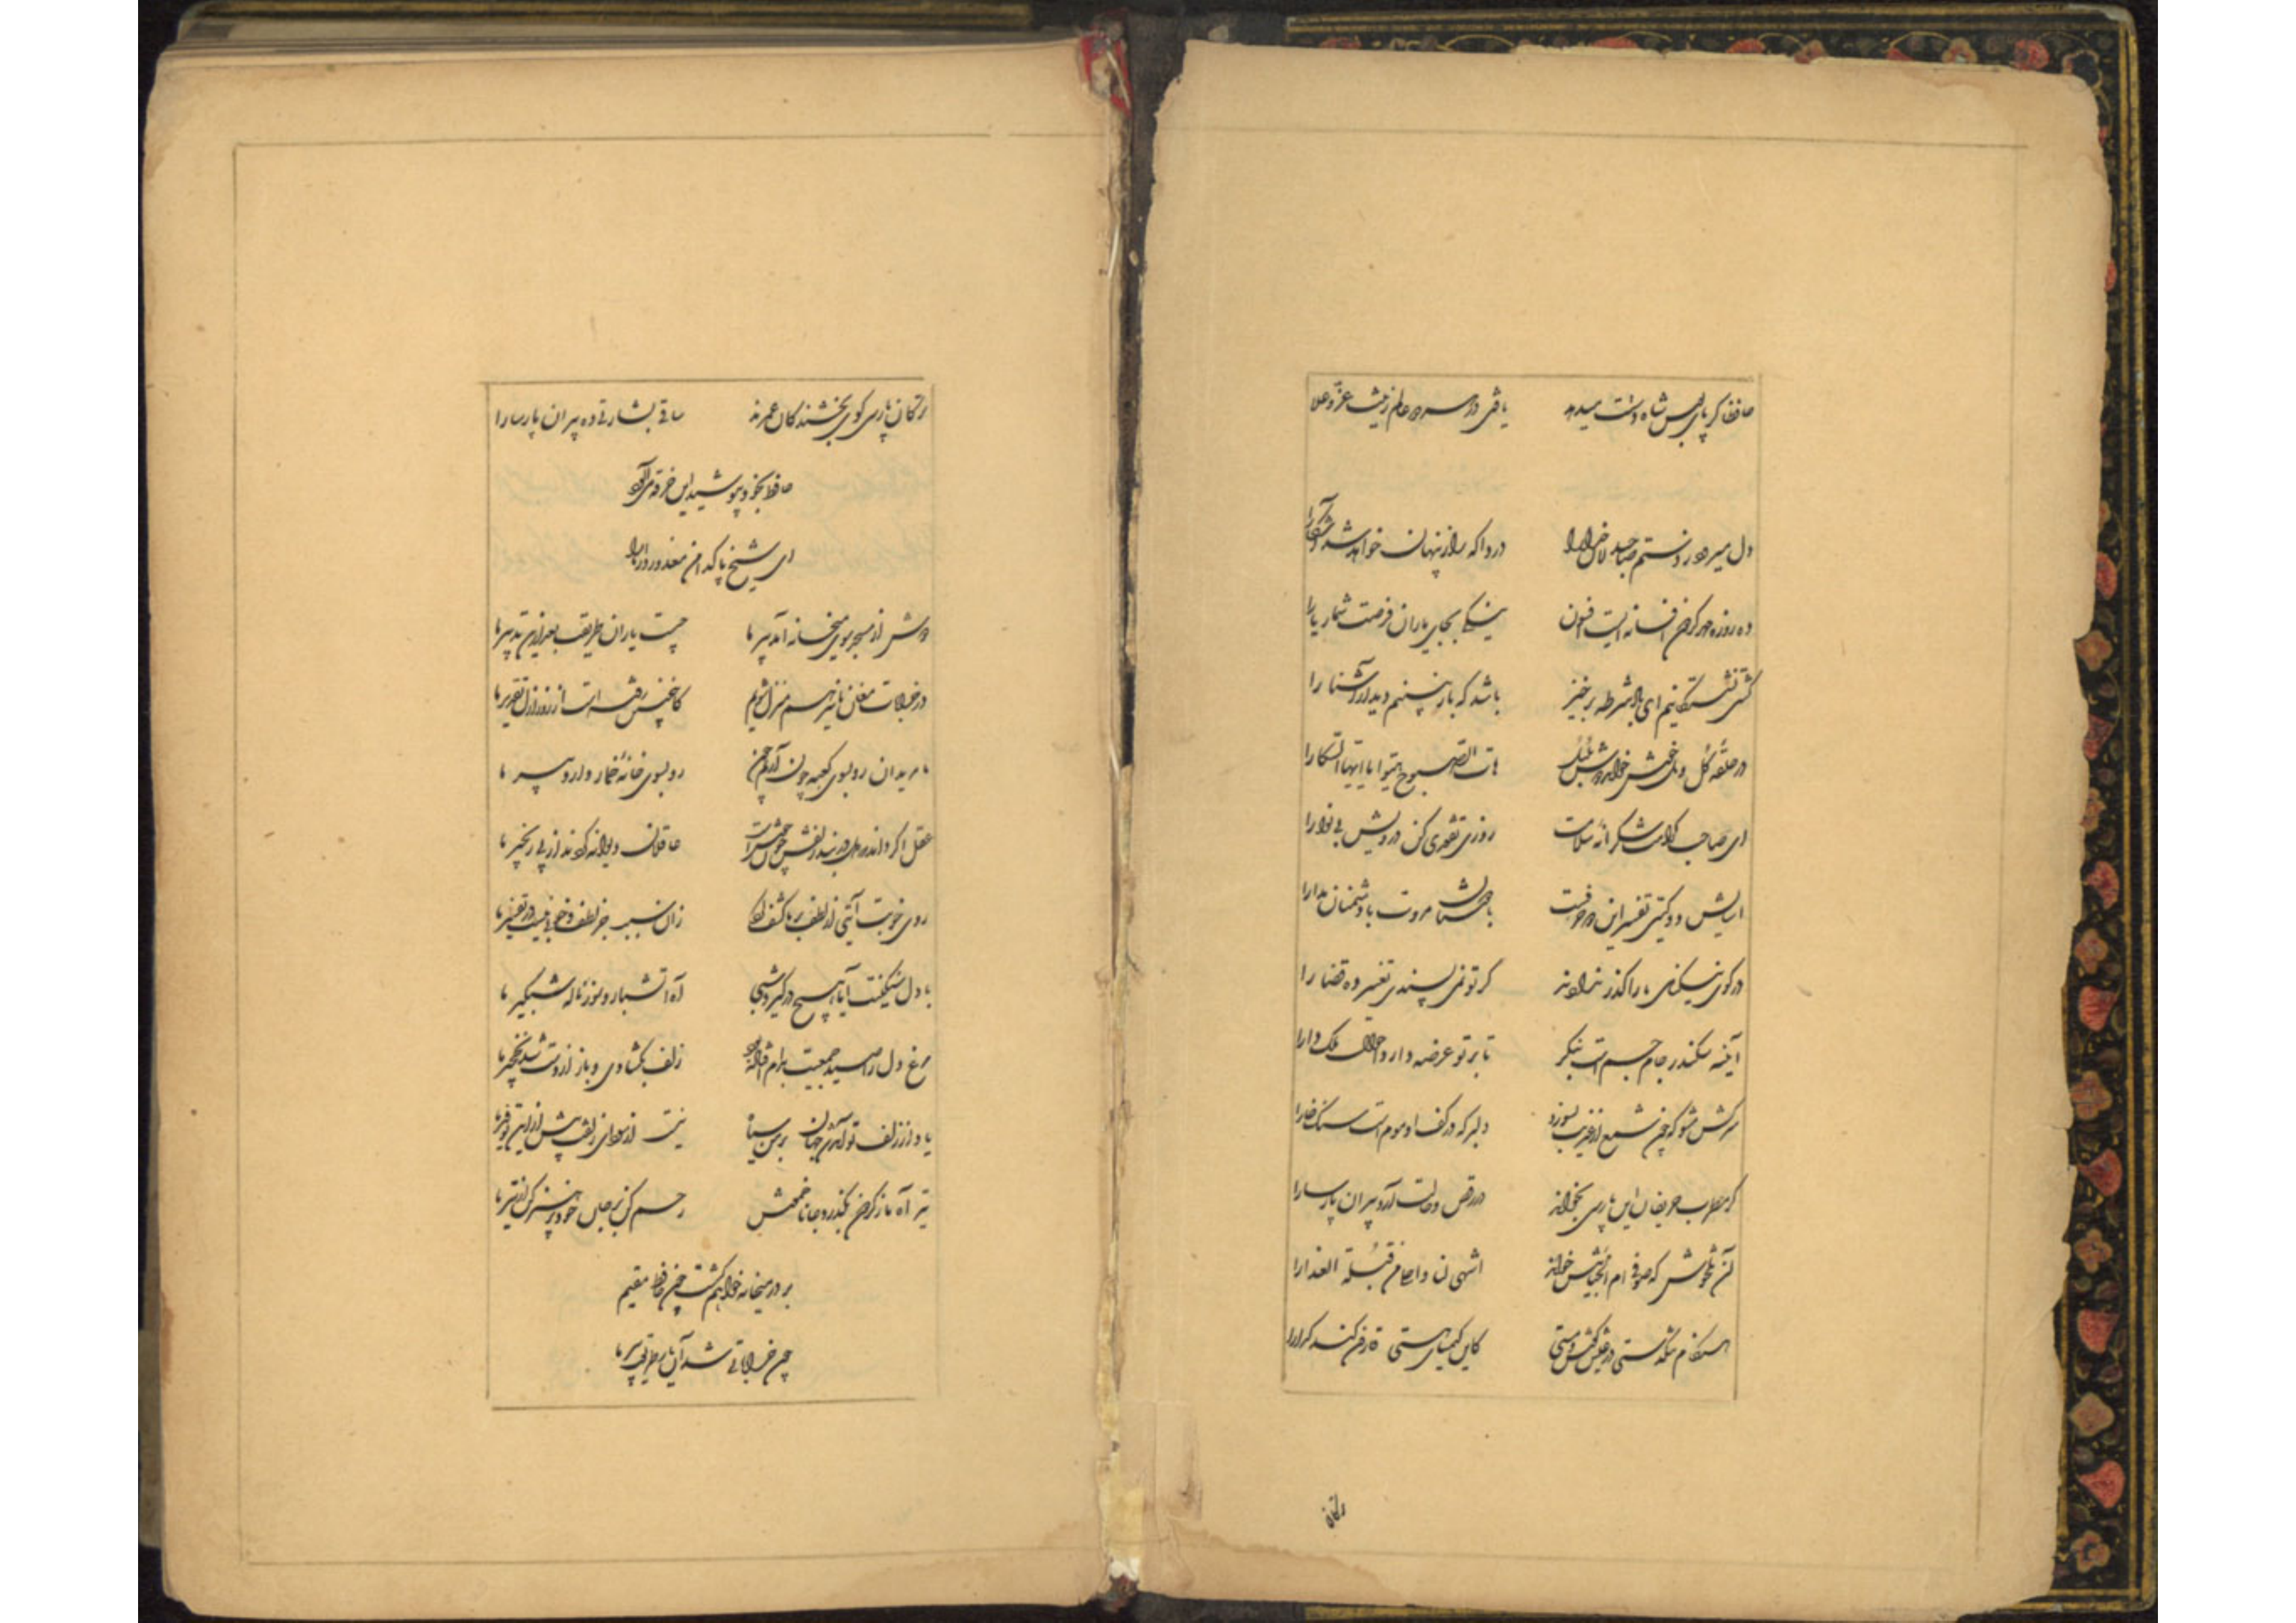 حافظ اگر پای بوس شاه دست میدهد یافتی در هر دو عالم زینت عز و علا
دل میرود ز دستم صاحبدلان خدا را دردا که راز پنهان خواهد شد آشکارا
ده روزه مهر گردون افسانه است افسون نیکی بجای یاران فرصت شمار یارا
کشتی نشستگانیم ای باد شرطه برخیز باشد که باز بینیم دیدار آشنا را
در حلقه گل و مل خوش خواند دوش بلبل هات الصبوح هبوا یا ایها السکارا
ای صاحب کرامت شکرانه سلامت روزی تفقدی کن درویش بی نوا را
آسایش دو گیتی تفسیر این دو حرفست با دوستان مروت با دشمنان مدارا
در کوی نیکنامی ما را گذر ندادند گر تو نمی پسندی تغییر ده قضا را
آئینه سکندر جام جم است بنگر تا بر تو عرضه دارد احوال ملک دارا
سرکش مشو که چون شمع از غیرتت بسوزد دلبر که در کف او موم است سنگ خارا
گر مطرب حریفان این پارسی بخواند در رقص و حالت آرد پیران پارسا را
آن تلخوش که صوفی ام الخبائش خواند اشهی لنا و احلی من قبلة العذارا
هنگام تنگدستی در عیش کوش و مستی کاین کیمیای هستی قارون کند گدا را
ترکان
ترکان پارسی گوی بخشندگان عمرند ساقی بشارتی ده پیران پارسا را
حافظ بخود نپوشید این خرقه می آلود
ای شیخ پاکدامن معذور دار ما را
دوش از مسجد سوی میخانه آمد پیر ما چیست یاران طریقت بعد ازین تدبیر ما
در خرابات مغان ما نیز هم منزل شویم کاینچنین رفته است از روز ازل تقدیر ما
ما مریدان رو بسوی کعبه چون آریم چون رو بسوی خانه خمار دارد پیر ما
عقل اگر داند که دل در بند زلفش چون خوش است عاقلان دیوانه گردند از پی زنجیر ما
روی خوبت آیتی از لطف بر ما کشف کرد زان سبب جز لطف و خوبی نیست در تفسیر ما
با دل سنگینت آیا هیچ درگیرد شبی آه آتشبار و سوز ناله شبگیر ما
مرغ دل را صید جمعیت بدام افتاده بود زلف بگشادی و باز از دست شد نخچیر ما
باد از زلف تو آمد شد جهان بر من سیاه نیست از سودای زلفت بیش ازین توفیر ما
تیر آه ما ز گردون بگذرد جانا خموش رحم کن بر جان خود پرهیز کن از تیر ما
بر در میخانه خواهم گشت چون حافظ مقیم
چون خراباتی شد آن یار طریقت پیر ما